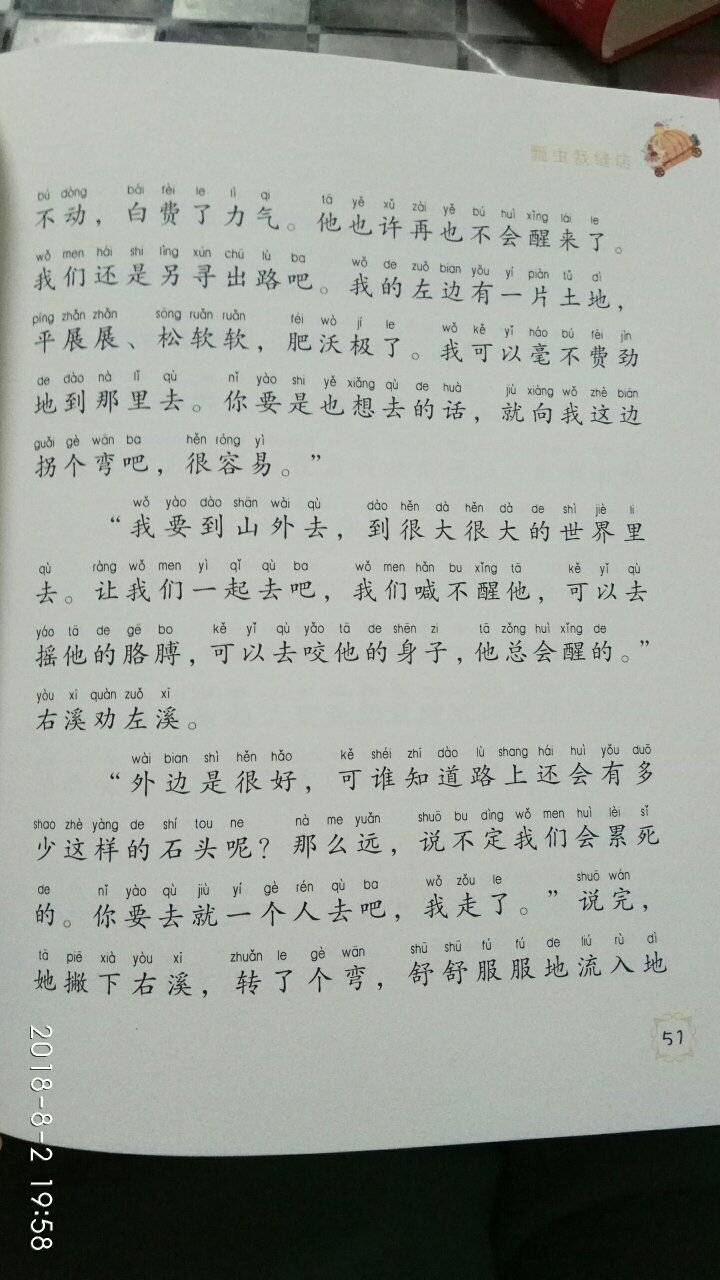 瓢虫裁缝店
bú dòng, bái fèi le lì qi tā yě xǔ zài yě bú huì xǐng lái le
不动，白费了力气。他也许再也不会醒来了。
wǒ men hái shi lìng xún chū lù ba wǒ de zuǒ bian yǒu yí piàn tǔ dì
我们还是另寻出路吧。我的左边有一片土地，
píng zhǎn zhǎn sōng ruǎn ruǎn féi wò jí le wǒ kě yǐ háo bú fèi jìn
平展展、松软软，肥沃极了。我可以毫不费劲
de dào nà lǐ qù nǐ yào shi yě xiǎng qù de huà jiù xiàng wǒ zhè biān
地到那里去。你要是也想去的话，就向我这边
guǎi gè wān ba hěn róng yì
拐个弯吧，很容易。”
wǒ yào dào shān wài qù dào hěn dà hěn dà de shì jiè li
“我要到山外去，到很大很大的世界里
qù ràng wǒ men yì qǐ qù ba wǒ men hǎn bu xǐng tā kě yǐ qù
去。让我们一起去吧，我们喊不醒他，可以去
yáo tā de gē bo kě yǐ qù yǎo tā de shēn zi tā zǒng huì xǐng de
摇他的胳膊，可以去咬他的身子，他总会醒的。”
yòu xī quàn zuǒ xī
右溪劝左溪。
wài bian shì hěn hǎo kě shéi zhī dào lù shang hái huì yǒu duō
“外边是很好，可谁知道路上还会有多
shao zhè yàng de shí tou ne nà me yuǎn shuō bu dìng wǒ men huì lèi sǐ
少这样的石头呢？那么远，说不定我们会累死
de nǐ yào qù jiù yí gè rén qù ba wǒ zǒu le shuō wán
的。你要去就一个人去吧，我走了。”说完，
tā piē xià yòu xī zhuǎn le gè wān shū shū fú fú de liú rù dì
她撇下右溪，转了个弯，舒舒服服地流入地
51
2018-8-2 19:58